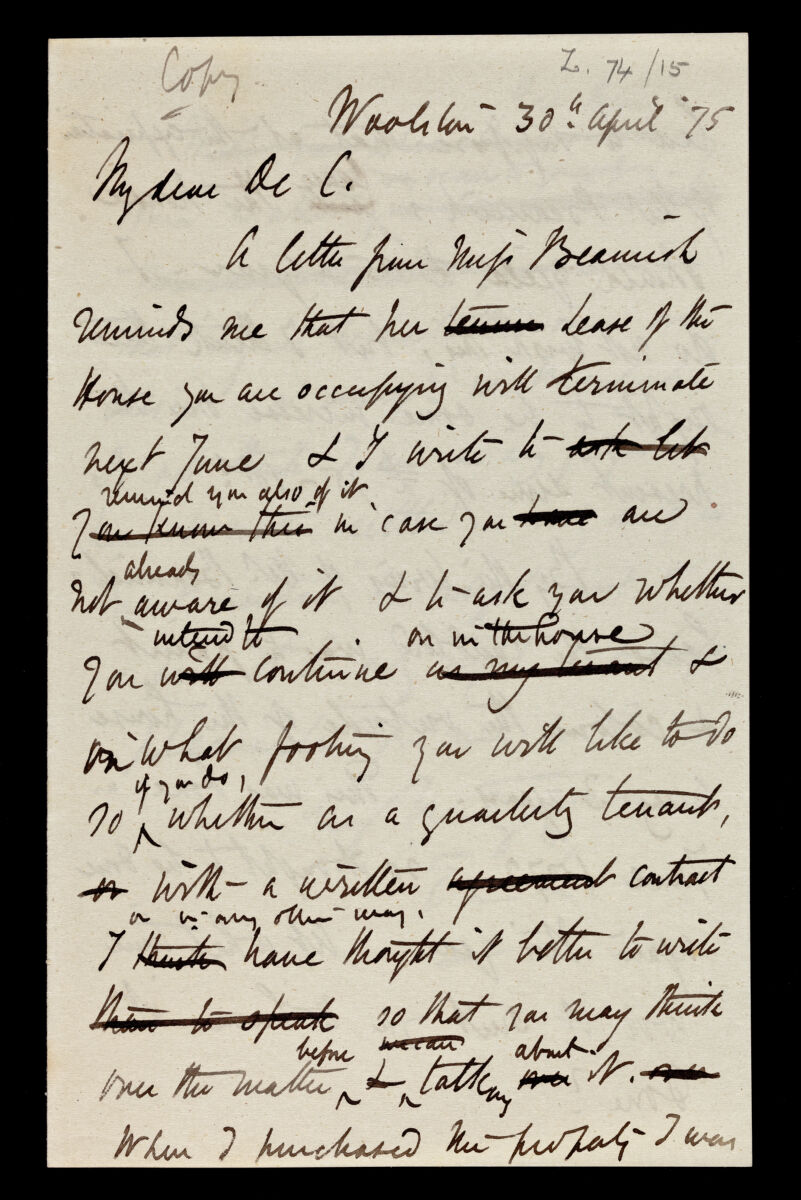 Copy
Z. 74/15
Woolston 30th April 75
My dear De C.
A letter from Miss Beamish
reminds me that her tenure Lease of the
House you are occupying will terminate
next June & I write to ask let
remind you also of it
you know this in case you have are
already
not aware of it & to ask you whether
intend to on in the house
you will continue as my tenant &
on what footing you will like to do
if you do,
so whether as a quarterly tenant,
or with a written agreement contract
or in any other way.
I think have thought it better to write
than to speak so that you may think
before we can about
over the matter & talking over it. over
When I purchased the property I was